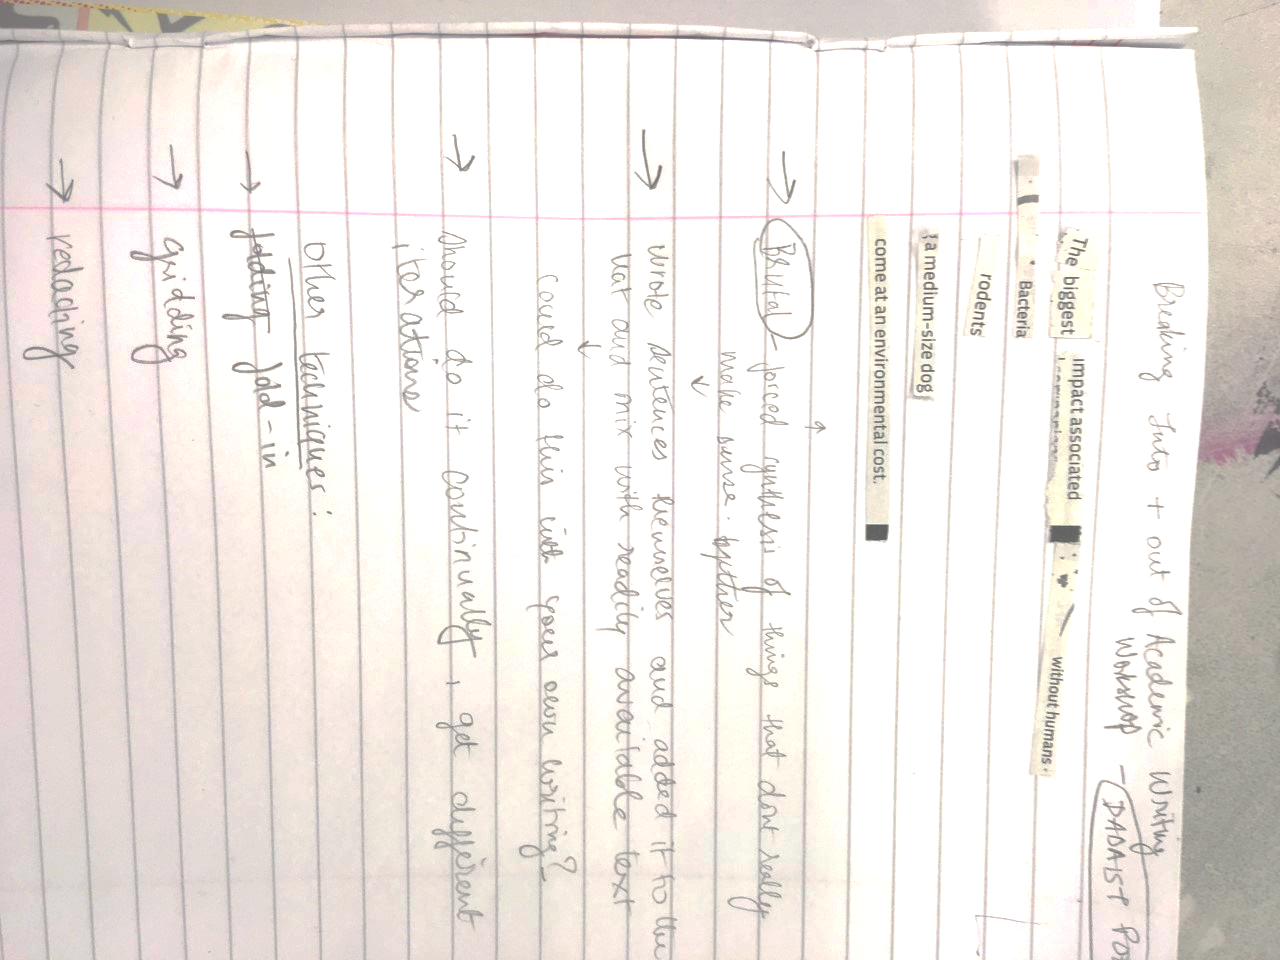 Breaking Into + out of Academic Writing
Workshop - DADAIST
The biggest impact associated
without humans.
Bacteria
rodents
a medium-size dog
come at an environmental cost.
→ Brutal - forced synthesis of things that dont really
make sense. together
→ wrote sentences themselves and added it to the
hat and mix with readily available text
could do this with your own writing?
→ should do it continually, get different
iterations
Other techniques:
→ folding fold-in
→ gridding
→ redacting